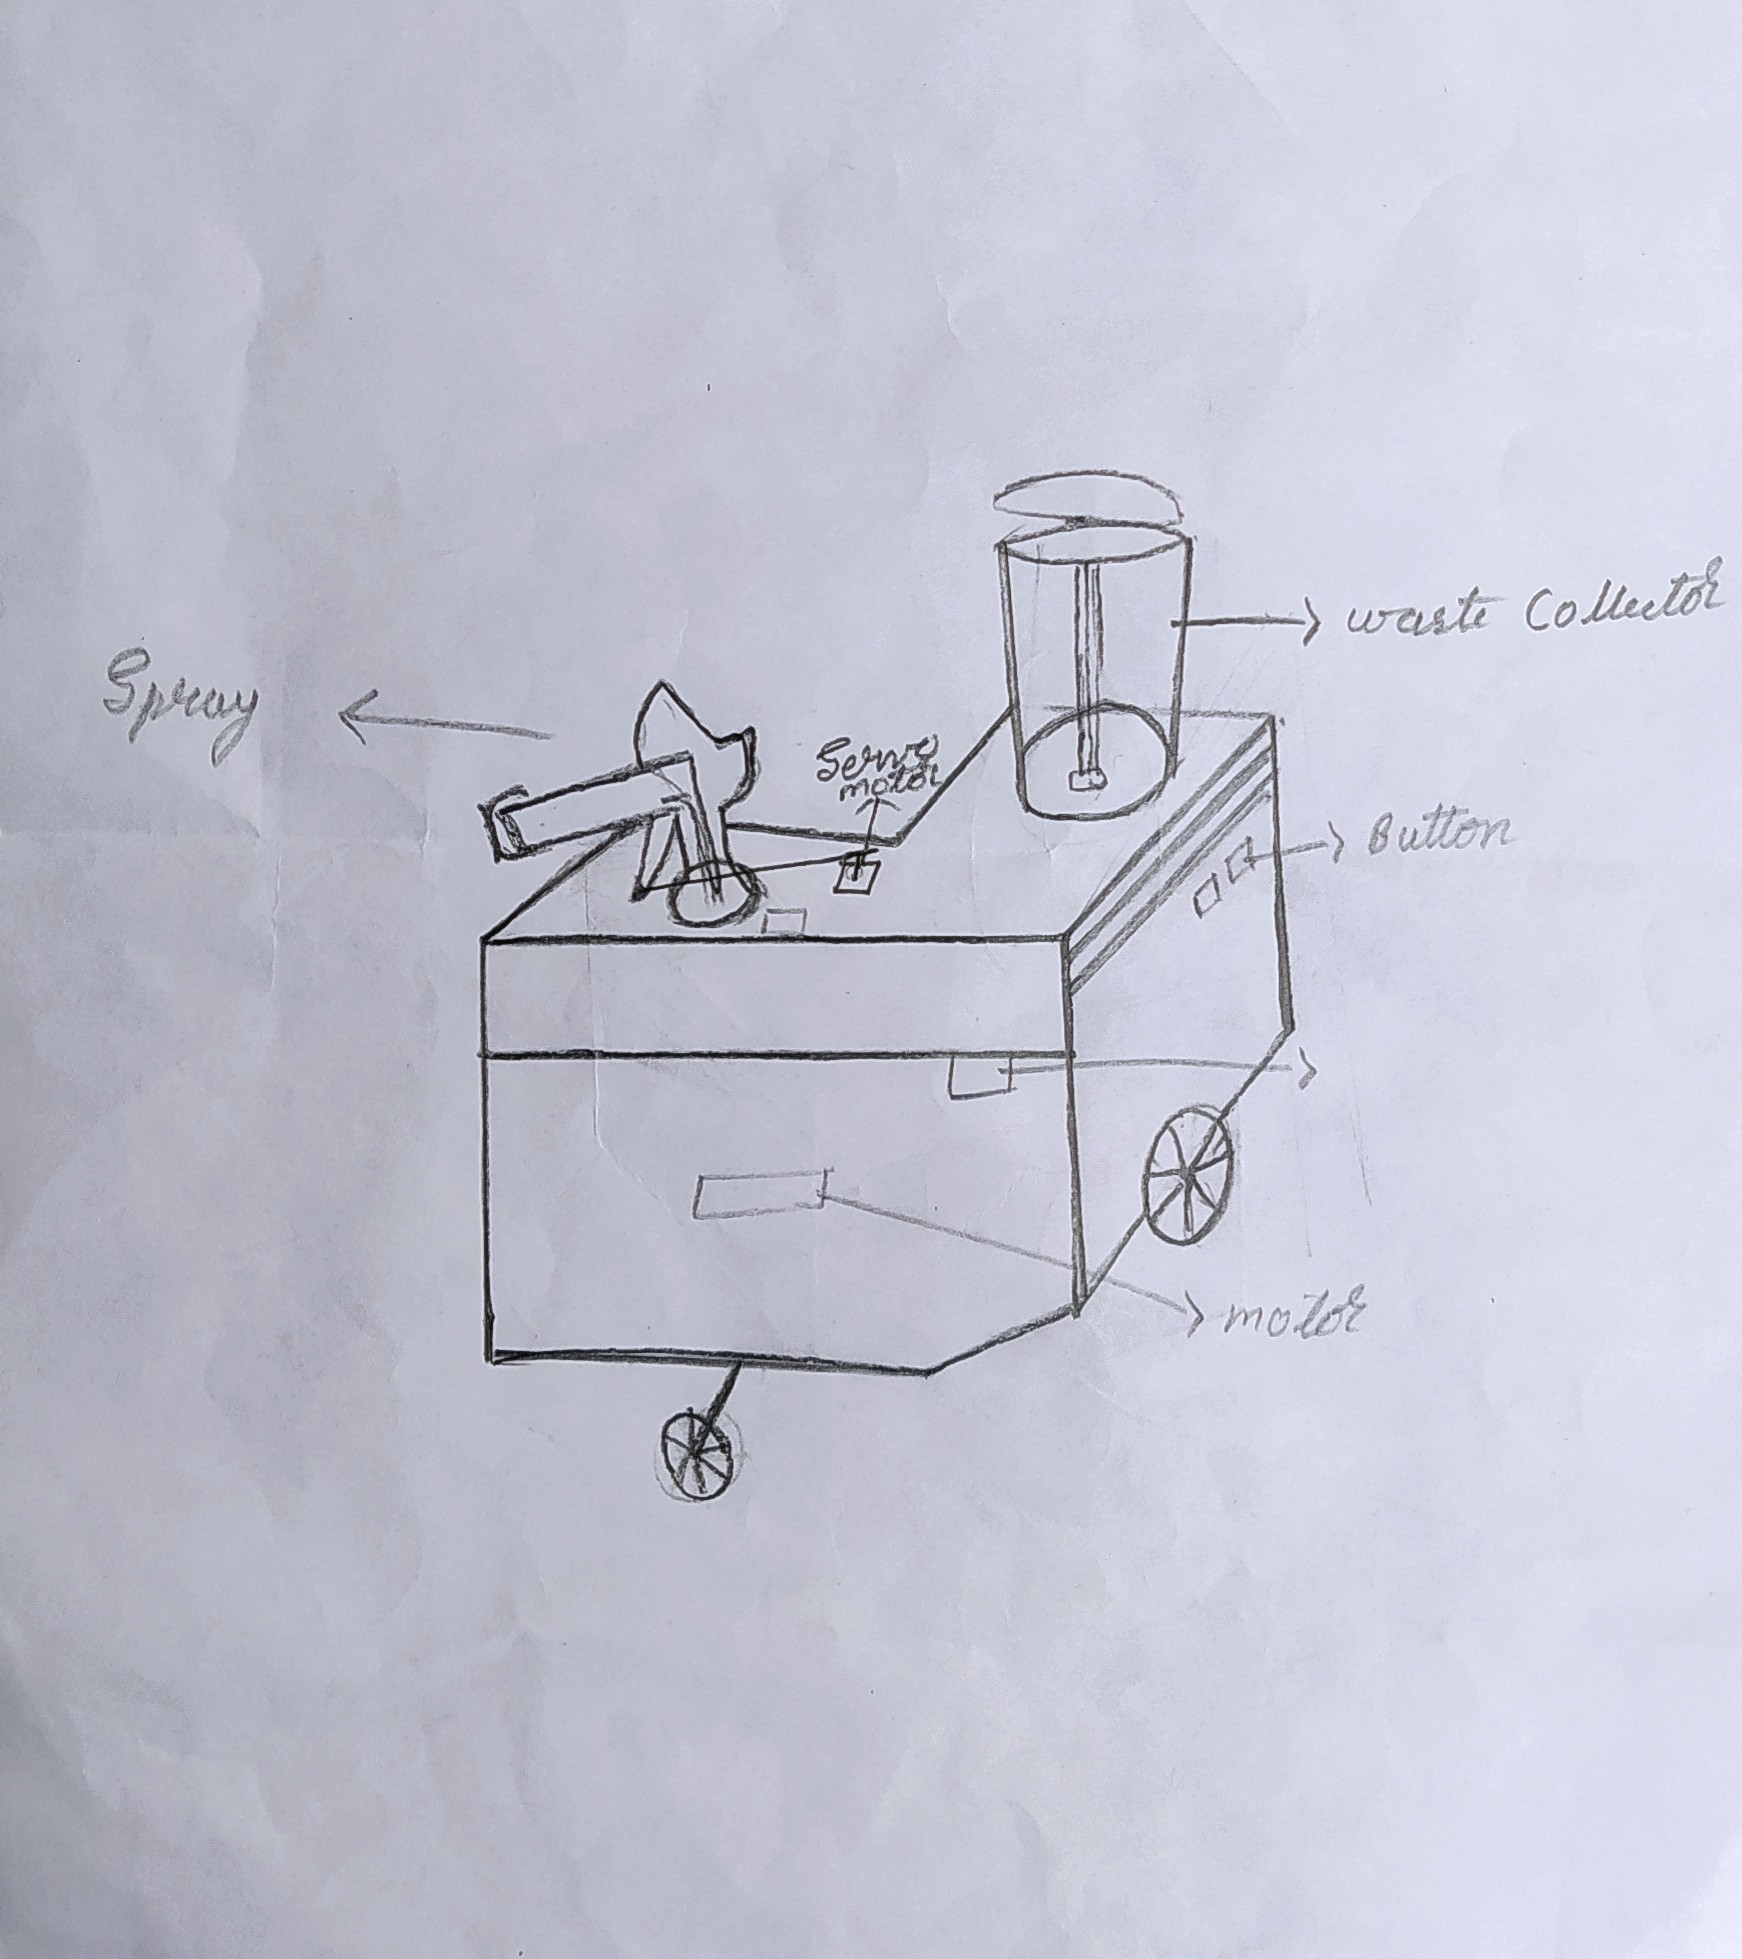 waste Collector
Spray
Servo
motor
Button
motor